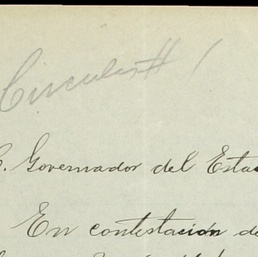 Circular # 1
C. Governador del Esta
En contestación de